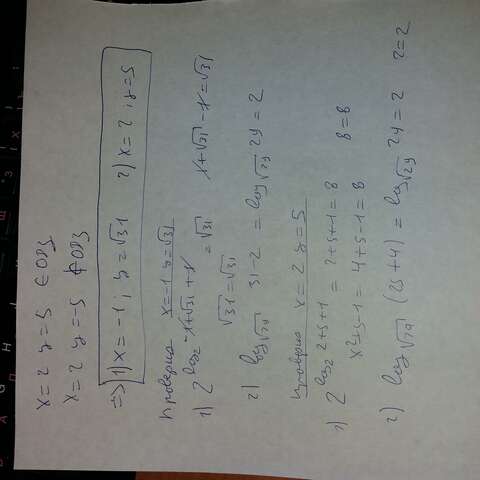 x=2 y=5 ∈ ОДЗ
x=2 y=-5 ∉ ОДЗ
=> 1) x=-1; y=√31 2) x=2, y=5
Проверка x=-1 y=√31
1) 2^log₂ -1+√31+1 = √31 1+√31-1=√31
√31=√31
2) log√29 31-2 = log√29 29=2
Проверка x=2 y=5
1) 2^log₂ 2+5+1 = 2+5+1=8
x²+y-1=4+5-1=8 8=8
2) log√29 (25+4) = log√29 29=2 2=2